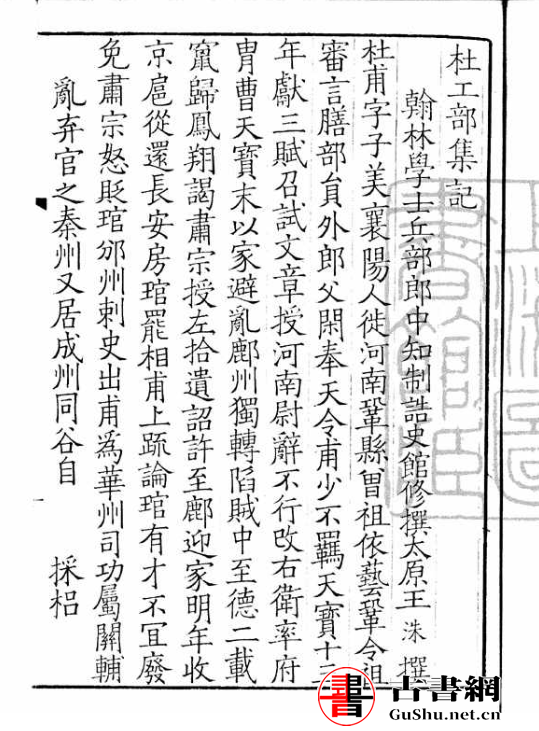 杜工部集記
翰林學士兵部郎中知制誥史館修撰太原王 洙 撰
杜甫字子美襄陽人徙河南鞏縣曾祖依藝鞏令祖
審言膳部貟外郎父閑奉天令甫少不羈天寶十三
年獻三賦召試文章授河南尉辭不行改右衛率府
胄曹天寶末以家避亂鄜州獨轉陷賊中至德二載
竄歸鳳翔謁肅宗授左拾遺詔許至鄜迎家明年收
京扈從還長安房琯罷相甫上疏論琯有才不冝廢
免肅宗怒貶琯邠州刺史出甫爲華州司功屬關輔
亂弃官之秦州又居成州同谷自 採梠
書 古書網
GuShu.net.cn